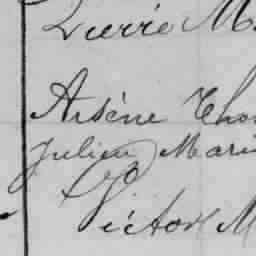 Pierre M
Arsène Tho
Julien Mari
Victor M